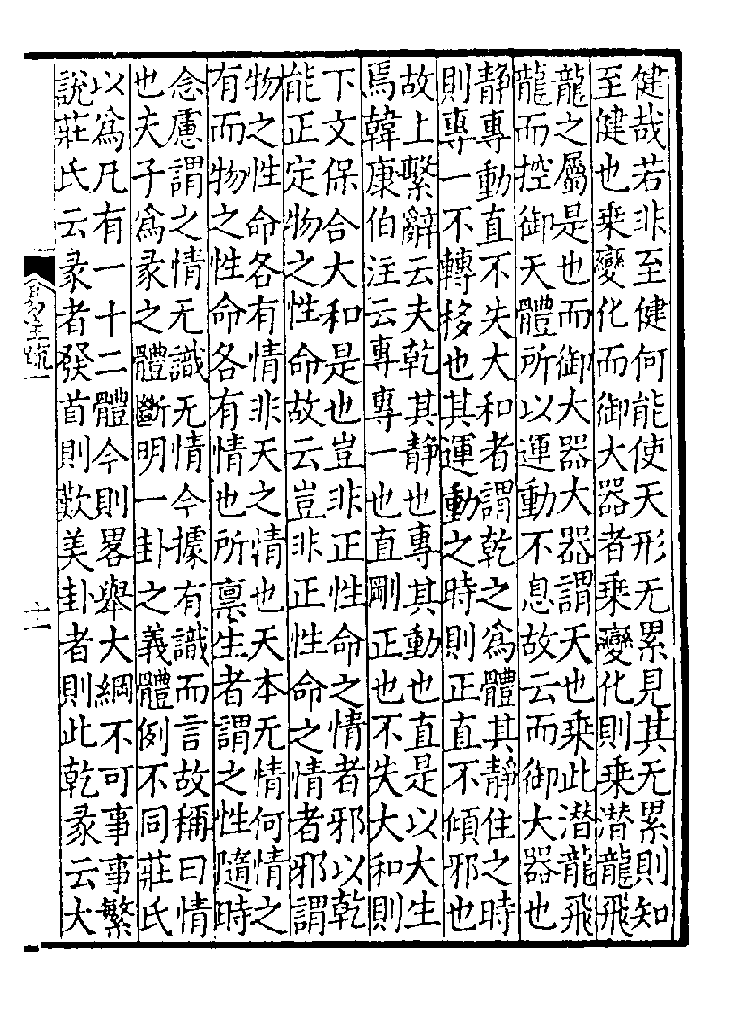 健哉若非至健何能使天形无累見其无累則知
至健也乘變化而御大器者乘變化則乘潛龍飛
龍之屬是也而御大器大器謂天也乘此潛龍飛
龍而控御天體所以運動不息故云而御大器也
靜專動直不失大和者謂乾之爲體其靜住之時
則專一不轉移也其運動之時則正直不傾邪也
故上繫辭云夫乾其靜也專其動也直是以大生
焉韓康伯注云專專一也直剛正也不失大和則
下文保合大和是也豈非正性命之情者邪以乾
能正定物之性命故云豈非正性命之情者邪謂
物之性命各有情非天之情也天本无情何情之
有而物之性命各有情也所稟生者謂之性隨時
念慮謂之情无識无情今據有識而言故稱曰情
也夫子爲彖之體斷明一卦之義體例不同莊氏
以爲凡有一十二體今則畧舉大綱不可事事繁
說莊氏云彖者發首則歎美卦者則此乾彖云大